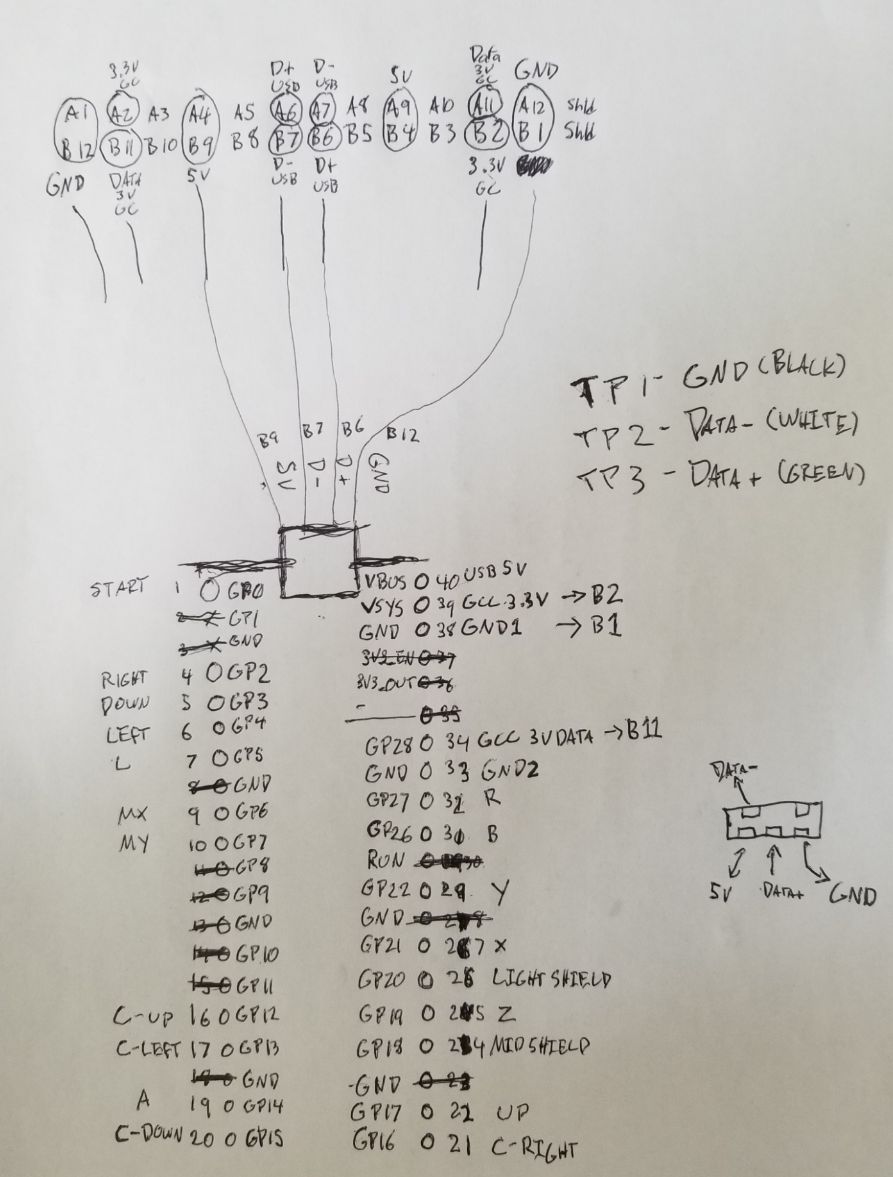 3.3V GC
D+ USB
D- USB
5V
Data 3V GC
GND
A1 A2 A3 A4 A5 A6 A7 A8 A9 A10 A11 A12 Shld
B12 B11 B10 B9 B8 B7 B6 B5 B4 B3 B2 B1 Shld
GND
DATA 3V GC
5V
D- USB
D+ USB
3.3V GC
TP1- GND (BLACK)
TP2- DATA- (WHITE)
TP3 - DATA+ (GREEN)
B9 B7 B6 B12
5V D- D+ GND
START 1 GP0
2 GP1
3 GND
RIGHT 4 GP2
DOWN 5 GP3
LEFT 6 GP4
L 7 GP5
8 GND
MX 9 GP6
MY 10 GP7
11 GP8
12 GP9
13 GND
14 GP10
15 GP11
C-UP 16 GP12
C-LEFT 17 GP13
18 GND
A 19 GP14
C-DOWN 20 GP15
VBUS 40 USB 5V
VSYS 39 GCC 3.3V → B2
GND 38 GND1 → B1
3V3_EN 37
3V3_OUT 36
35
GP28 34 GCC 3V DATA → B11
GND 33 GND2
GP27 32 R
GP26 31 B
RUN 30
GP22 29 Y
GND 28
GP21 27 X
GP20 26 LIGHTSHIELD
GP19 25 Z
GP18 24 MIDSHIELD
GND 23
GP17 22 UP
GP16 21 C-RIGHT
DATA-
5V DATA+ GND